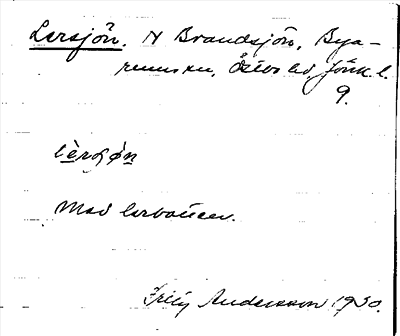 Lersjön. N Brandsjön, Bya-
rums sn, Östbo hd. Jönk. l.
9.
lèrʃø̀n
Med lerbotten.
Fritz Andersson 1930.